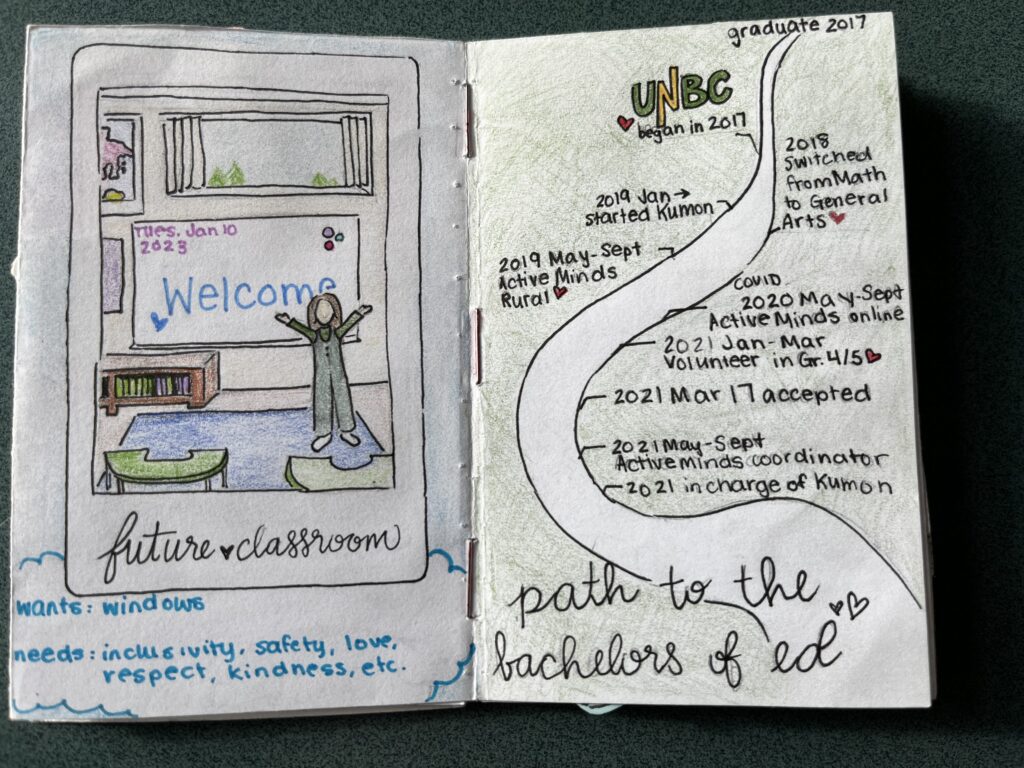 Tues. Jan 10
2023
Welcome
future classroom
wants: windows
needs: inclusivity, safety, love,
respect, kindness, etc.
graduate 2017
UNBC
began in 2017
2018
Switched
from Math
to General
Arts
2019 Jan →
started Kumon
2019 May-Sept
Active Minds
Rural
COVID
2020 May-Sept
Active Minds online
2021 Jan-Mar
Volunteer in Gr. 4/5
2021 Mar 17 accepted
2021 May-Sept
Active minds coordinator
2021 in charge of Kumon
path to the
bachelors of ed